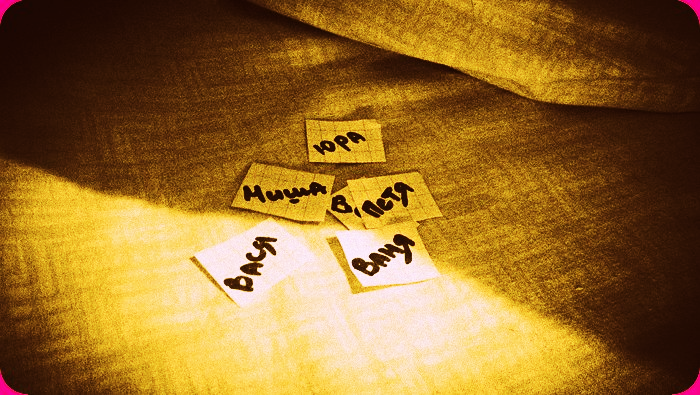 ЮРА
Миша
В
ПЕТЯ
ВАСЯ
ВАНЯ